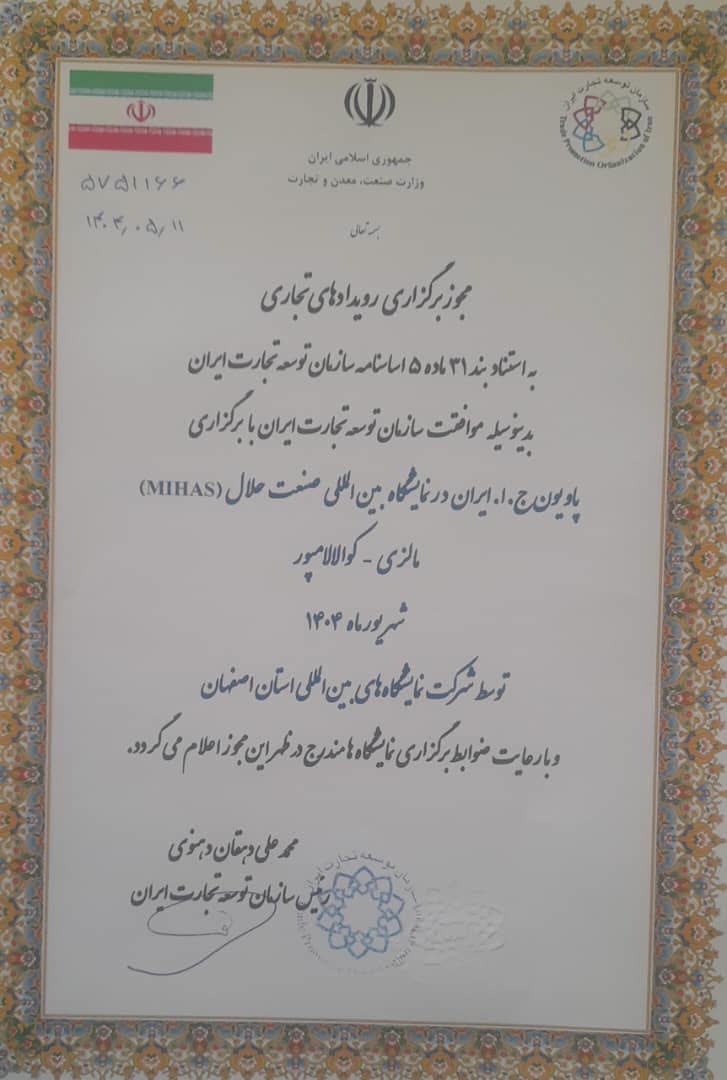 سازمان توسعه تجارت ایران
Trade Promotion Organization of Iran
جمهوری اسلامی ایران
وزارت صنعت، معدن و تجارت
۵۷۵۱۱۶۶
۱۴۰۴٫۰۵٫۱۱
بسمه تعالی
مجوز برگزاری رویدادهای تجاری
به استناد بند ۳۱ ماده ۵ اساسنامه سازمان توسعه تجارت ایران
بدینوسیله موافقت سازمان توسعه تجارت ایران با برگزاری
پاویون ج.ا.ایران در نمایشگاه بین المللی صنعت حلال (MIHAS)
مالزی - کوالالامپور
شهریور ماه ۱۴۰۴
توسط شرکت نمایشگاه های بین المللی استان اصفهان
و با رعایت ضوابط برگزاری نمایشگاه ها مندرج در ظهر این مجوز اعلام می گردد.
محمد علی دهقان دهنوی
رئیس سازمان توسعه تجارت ایران
سازمان توسعه تجارت ایران